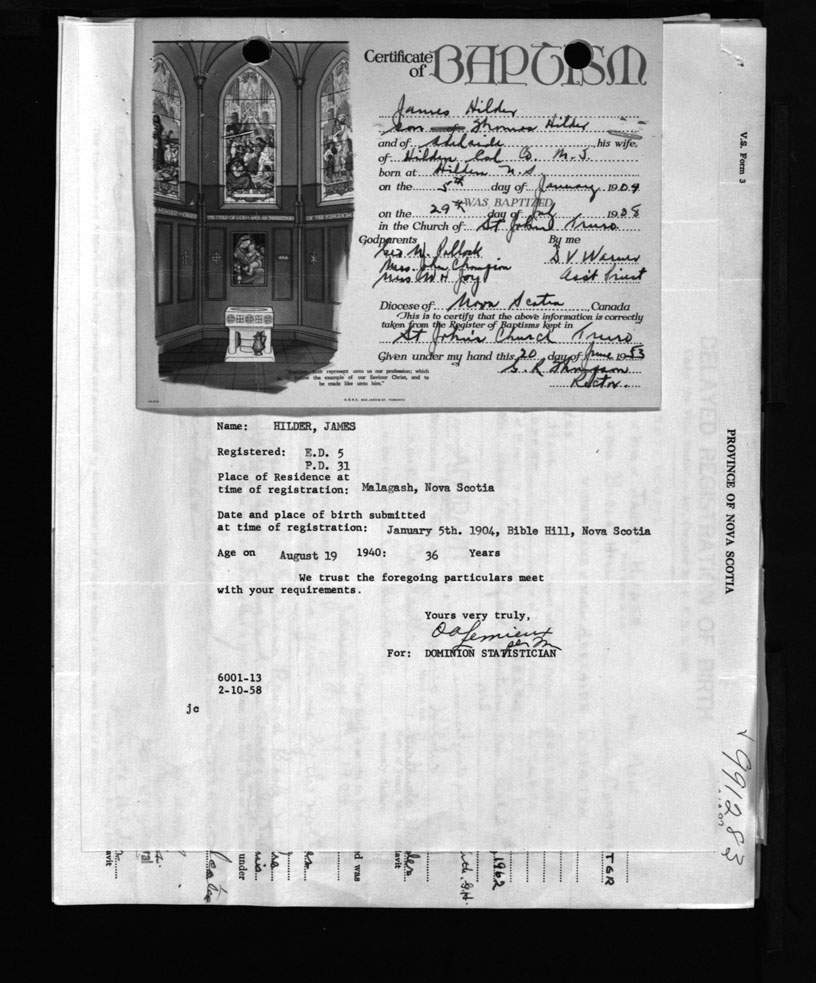 Certificate of BAPTISM
James Hilder
son of Thomas Hilder
and of Adelaide his wife.
of Hilden Col Co. N.S.
born at Hilden N.S.
on the 5th day of January 1904
WAS BAPTIZED
on the 29th day of 1908
in the Church of St John's Truro
Godparents By me
Geo W. Pollock D V Warner
Mrs. John Champion Asst Priest
Mrs W H Joy
Diocese of Nova Scotia, Canada
This is to certify that the above information is correctly
taken from the Register of Baptisms kept in
St John's Church Truro
Given under my hand this 20 day of June 1953
G. R. Thompson
Rector
represent unto us our profession; which
the example of our Saviour Christ, and to
be made like unto him."
Name: HILDER, JAMES
Registered: E.D. 5
P.D. 31
Place of Residence at
time of registration: Malagash, Nova Scotia
Date and place of birth submitted
at time of registration: January 5th. 1904, Bible Hill, Nova Scotia
Age on August 19 1940: 36 Years
We trust the foregoing particulars meet
with your requirements.
Yours very truly,
O A Lemieux
per M
For: DOMINION STATISTICIAN
6001-13
2-10-58
jc
V.S. Form 3
PROVINCE OF NOVA SCOTIA
991283
DELAYED REGISTRATION OF BIRTH
TGR
1962
d was
under